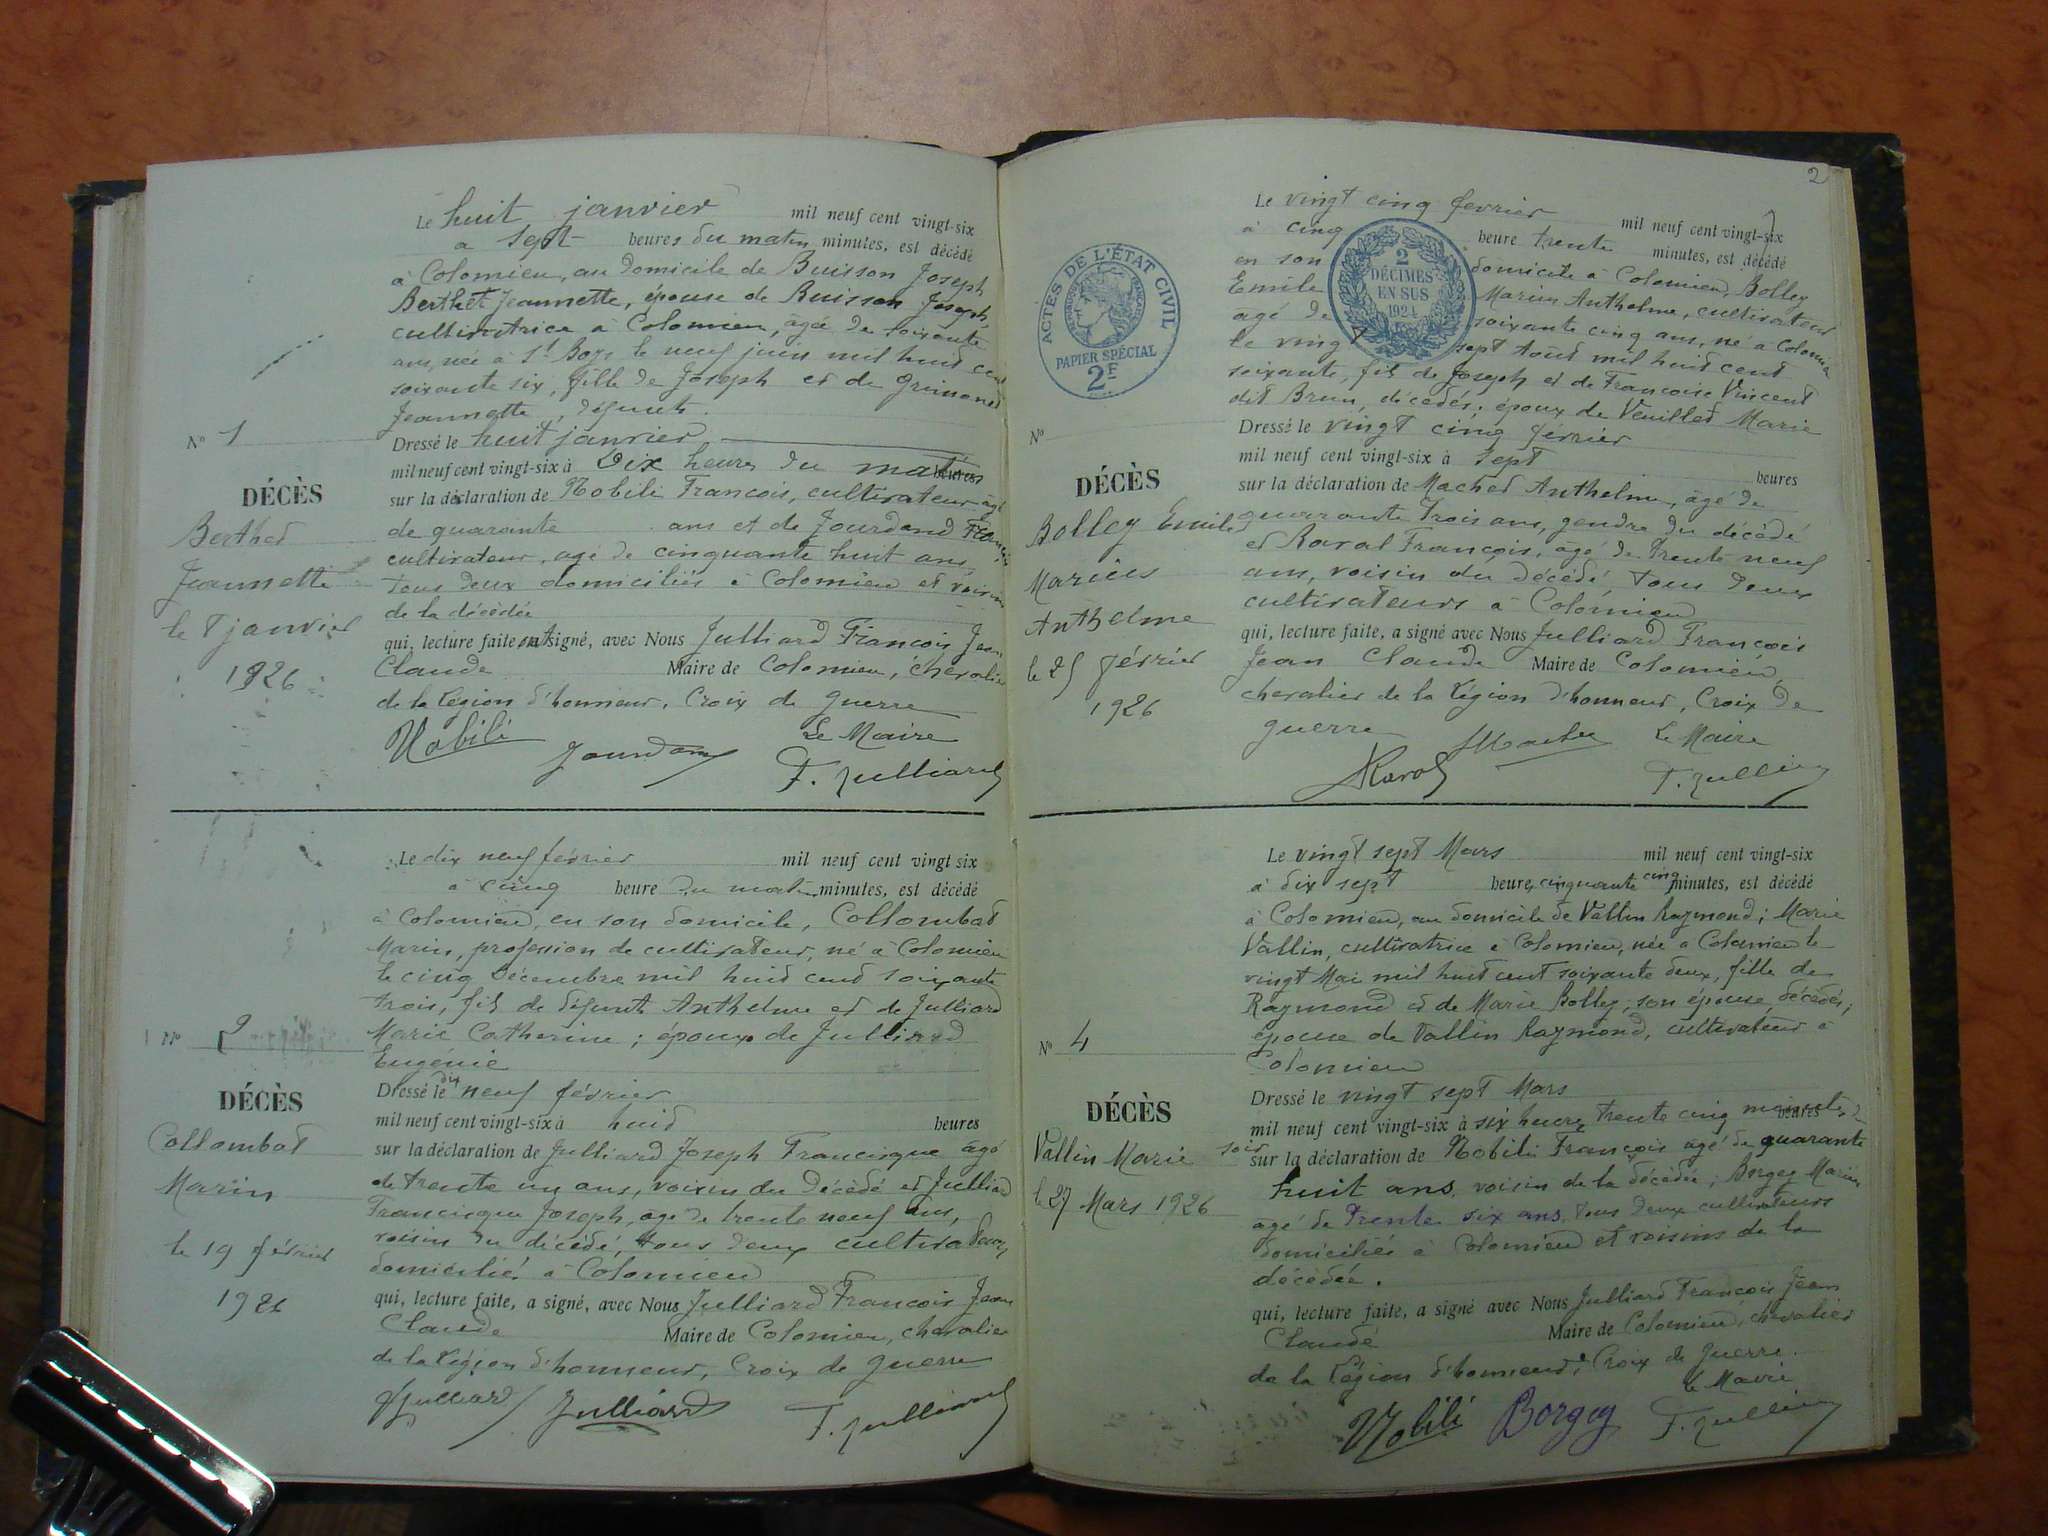 Le huit janvier mil neuf cent vingt-six
a sept heures du matin minutes, est décédé
à Colomieu, au domicile de Buisson Joseph
Berthet Jeannette, épouse de Buisson Joseph,
cultivatrice à Colomieu, âgée de soixante
ans, née à St Bois le neuf juin mil huit cent
soixante six, fille de Joseph et de
Jeannette, défunts.
No 1
Dressé le huit janvier
mil neuf cent vingt-six à Dix heures du matin heures
sur la déclaration de Nobili François, cultivateur âgé
de quarante ans et de Jourdand François
cultivateur, agé de cinquante huit ans,
tous deux domiciliés à Colomieu et voisins
de la décédée
qui, lecture faite ont signé, avec Nous Julliard François Jean
Claude Maire de Colomieu, chevalier
de la Légion d'honneur, Croix de guerre
DÉCÈS
Berthet
Jeannette
le 8 janvier
1926
Le Maire
Nobili Jourdan F. Julliard
Le dix neuf février mil neuf cent vingt six
à cinq heure du matin minutes, est décédé
à Colomieu, en son domicile, Collombat
Marin, profession de cultivateur, né à Colomieu
le cinq Décembre mil huit cent soixante
trois, fils de défunts Anthelme et de Julliard
Marie Catherine ; époux de Julliard
Eugenie
No 2
Dressé le dix neuf février
mil neuf cent vingt-six à huit heures
sur la déclaration de Julliard Joseph Francisque âgé
de trente un ans, voisin du décédé et Julliard
Francisque Joseph, age de trente neuf ans,
voisin du décédé, tous deux cultivateurs
domiciliés à Colomieu
qui, lecture faite, a signé, avec Nous Julliard François Jean
Claude Maire de Colomieu, chevalier
de la Légion d'honneur, Croix de guerre
DÉCÈS
Collombat
Marin
le 19 février
1926
Julliard Julliard F. Julliard
2
Le vingt cinq février mil neuf cent vingt-six
à cinq heure trente minutes, est décédé
en son domicile à Colomieu, Bolley
Emile Marius Anthelme, cultivateur
agé de soixante cinq ans, né à Colomieu
le vingt sept Août mil huit cent
soixante, fils de Joseph et de Françoise Vincent
dit Brun, décédés; époux de Veuillet Marie
ACTES DE L'ÉTAT CIVIL
RÉPUBLIQUE FRANÇAISE
PAPIER SPÉCIAL
2F
2
DÉCIMES
EN SUS
1924
No
Dressé le vingt cinq février
mil neuf cent vingt-six à sept heures
sur la déclaration de Machet Anthelme, âgé de
quarante trois ans, gendre du décédé
et Ravat François, âgé de trente neuf
ans, voisin du décédé, tous deux
cultivateurs à Colomieu
qui, lecture faite, a signé avec Nous Julliard François
Jean Claude Maire de Colomieu,
chevalier de la Légion d'honneur, Croix de
guerre
DÉCÈS
Bolley Emile
Marius
Anthelme
le 25 février
1926
Le Maire
Ravat Machet F. Julliard
Le vingt sept Mars mil neuf cent vingt-six
à dix sept heures cinquante cinq minutes, est décédé
à Colomieu, au domicile de Vallin Raymond ; Marie
Vallin, cultivatrice à Colomieu, née à Colomieu le
vingt Mai mil huit cent soixante deux, fille de
Raymond et de Marie Bolley, son épouse, décédés;
épouse de Vallin Raymond, cultivateur à
Colomieu
No 4
Dressé le vingt sept Mars
mil neuf cent vingt-six à six heures trente cinq minutes heures
soir
sur la déclaration de Nobili François âgé de quarante
huit ans, voisin de la décédée ; Borgey Marius
agé de trente six ans, tous deux cultivateurs
domiciliés à Colomieu et voisins de la
décédée.
qui, lecture faite, a signé avec Nous Julliard François Jean
Claude Maire de Colomieu, chevalier
de la Légion d'honneur, Croix de guerre.
DÉCÈS
Vallin Marie
le 27 Mars 1926
Le Maire
Nobili Borgey F. Julliard